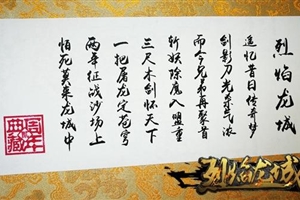 烈焰龙城
追忆昔日传奇梦
剑影刀光杀气浓
而今兄弟再聚首
斩妖除魔入盟重
三尺木剑怀天下
一把屠龙定苍穹
两年征战沙场上
怕死莫来龙城中
周年
典藏
烈焰龙城